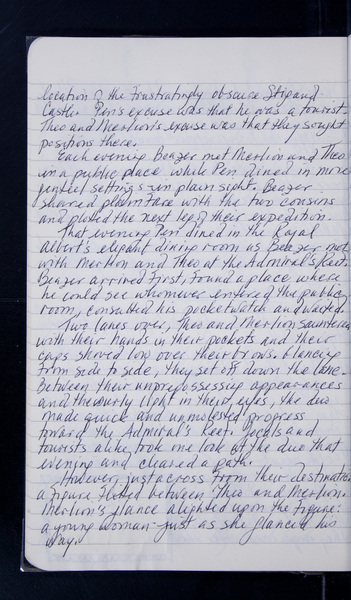 location of the frustratingly obscure Stipand
Castle. Pen's excuse was that he was a tourist
Theo and Merlion's excuse was that they sought
positions there.
Each evening Beazer met Merlion and Theo
in a public place while Pen dined in more
genteel settings in plain sight. Beazer
shared plain fare with the two cousins
and plotted the next leg of their expedition.
That evening Pen dined in the Royal
Albert's elegant dining room as Beazer met
with Merlion and Theo at the Admiral's Reef.
Beazer arrived first, found a place where
he could see whomever entered the public
room, consulted his pocketwatch and waited.
Two lanes over, Theo and Merlion sauntered
with their hands in their pockets and their
caps shoved low over their brows. Glancing
from side to side, they set off down the lane.
Between their unprepossessing appearances
and the surly light in their eyes, the duo
made quick and unmolested progress
toward the Admiral's Reef. Locals and
tourists alike took one look at the duo that
evening and cleared a path.
However, just across from their destination
a figure flitted between Theo and Merlion.
Merlion's glance alighted upon the figure:
a young woman just as she glanced his
way.